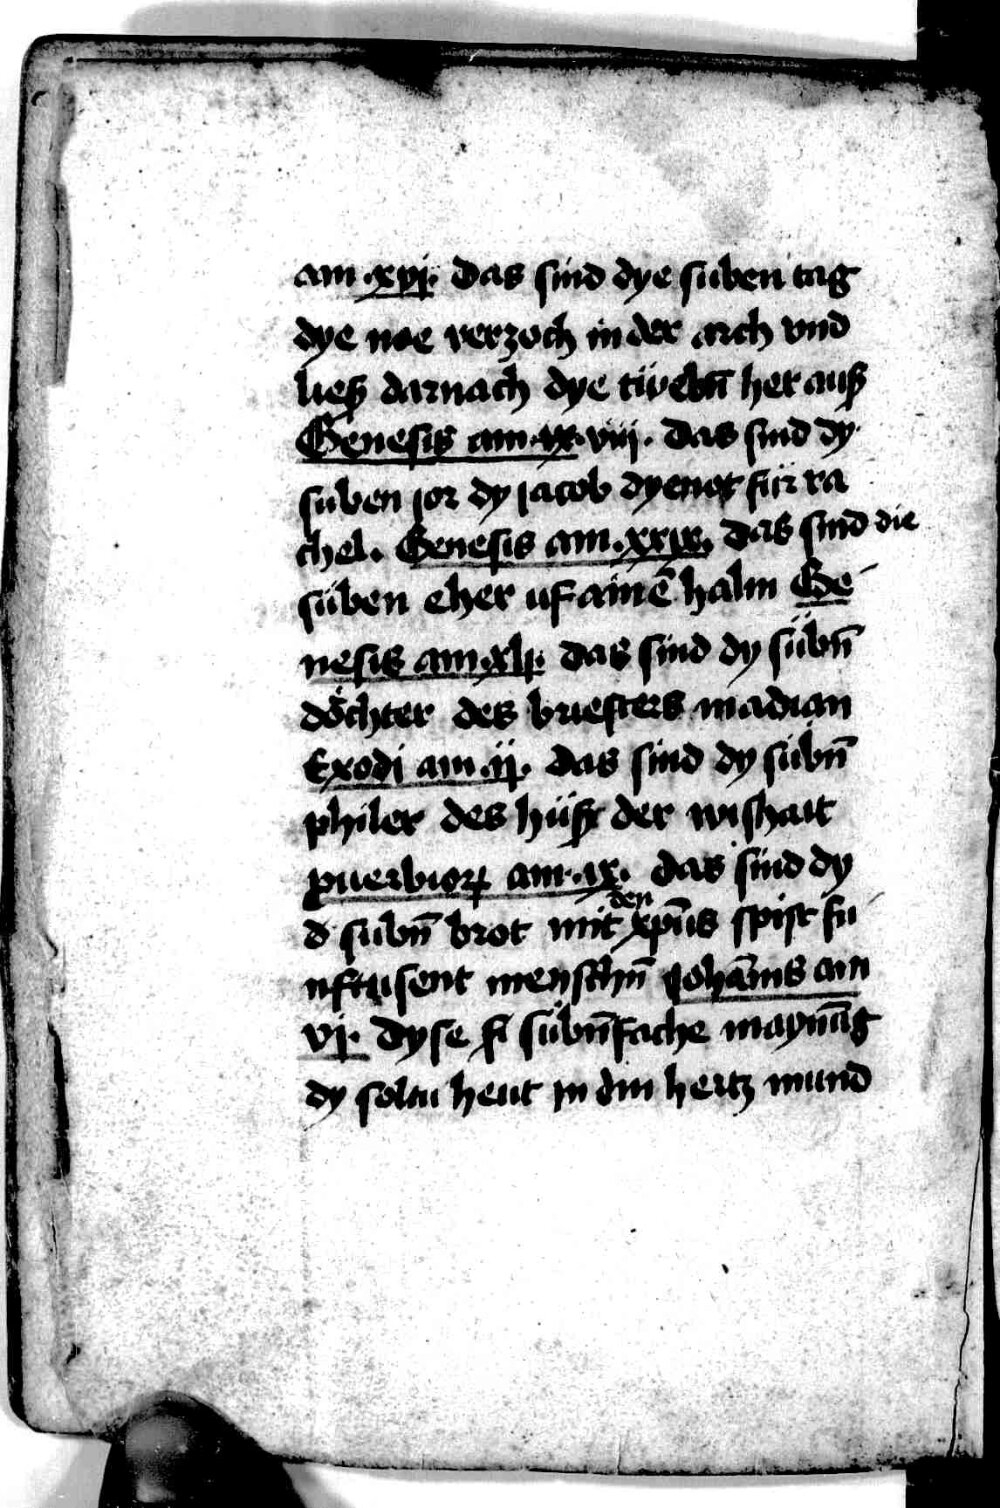 am .xvj. das sind dye suben tag
dye noe verzoch in der arch vnd
liess darnach dye tüebn̄ her auß
Genesis am .ix. viij. das sind dy
suben jor dy jacob dyenet für ra
chel. Genesis am .xxix. das sind die
süben eher uf ainē halm Ge
nesis am .xlj. das sind dy sübn̄
döchter des briesters madian
Exodi am .ij. das sind dy sübn̄
philer des hüsz der wishait
puerbiorꝝ am .ix. das sind dy
d subn̄ brot mit den xp̄us spist fü
nftusent menschn̄ Johānis am
vj. dyse si sübn̄fache maynūg
dy soltu heut jn din hertz mund